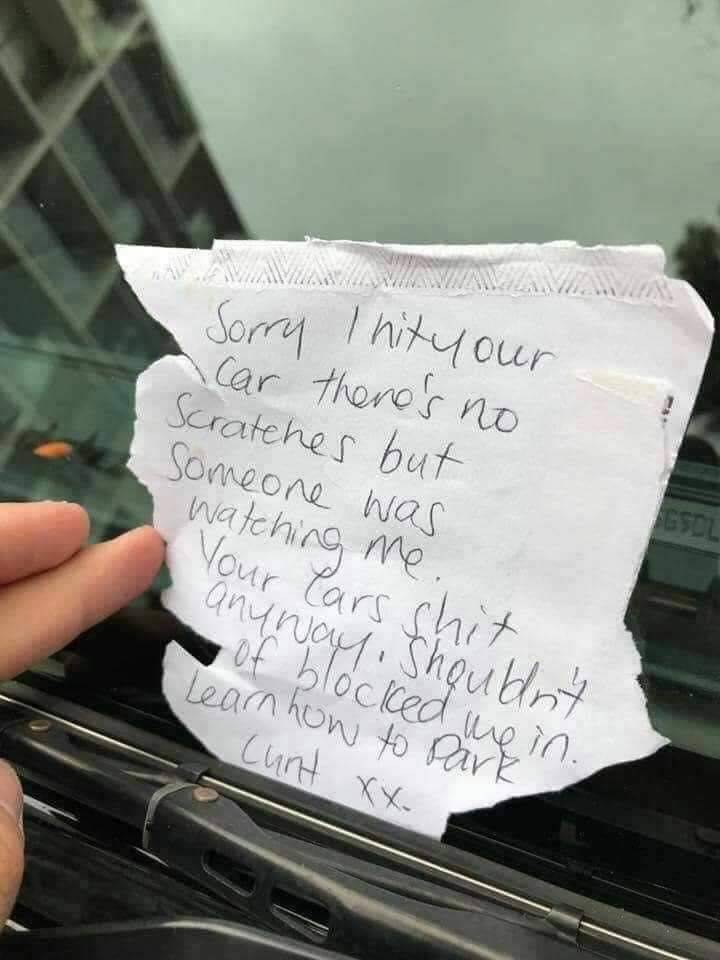 Sorry I hit your
car there's no
Scratches but
Someone was
watching me.
Your Cars shit
anyway. Shouldnt
of blocked me in.
Learn how to Park
Cunt xx.